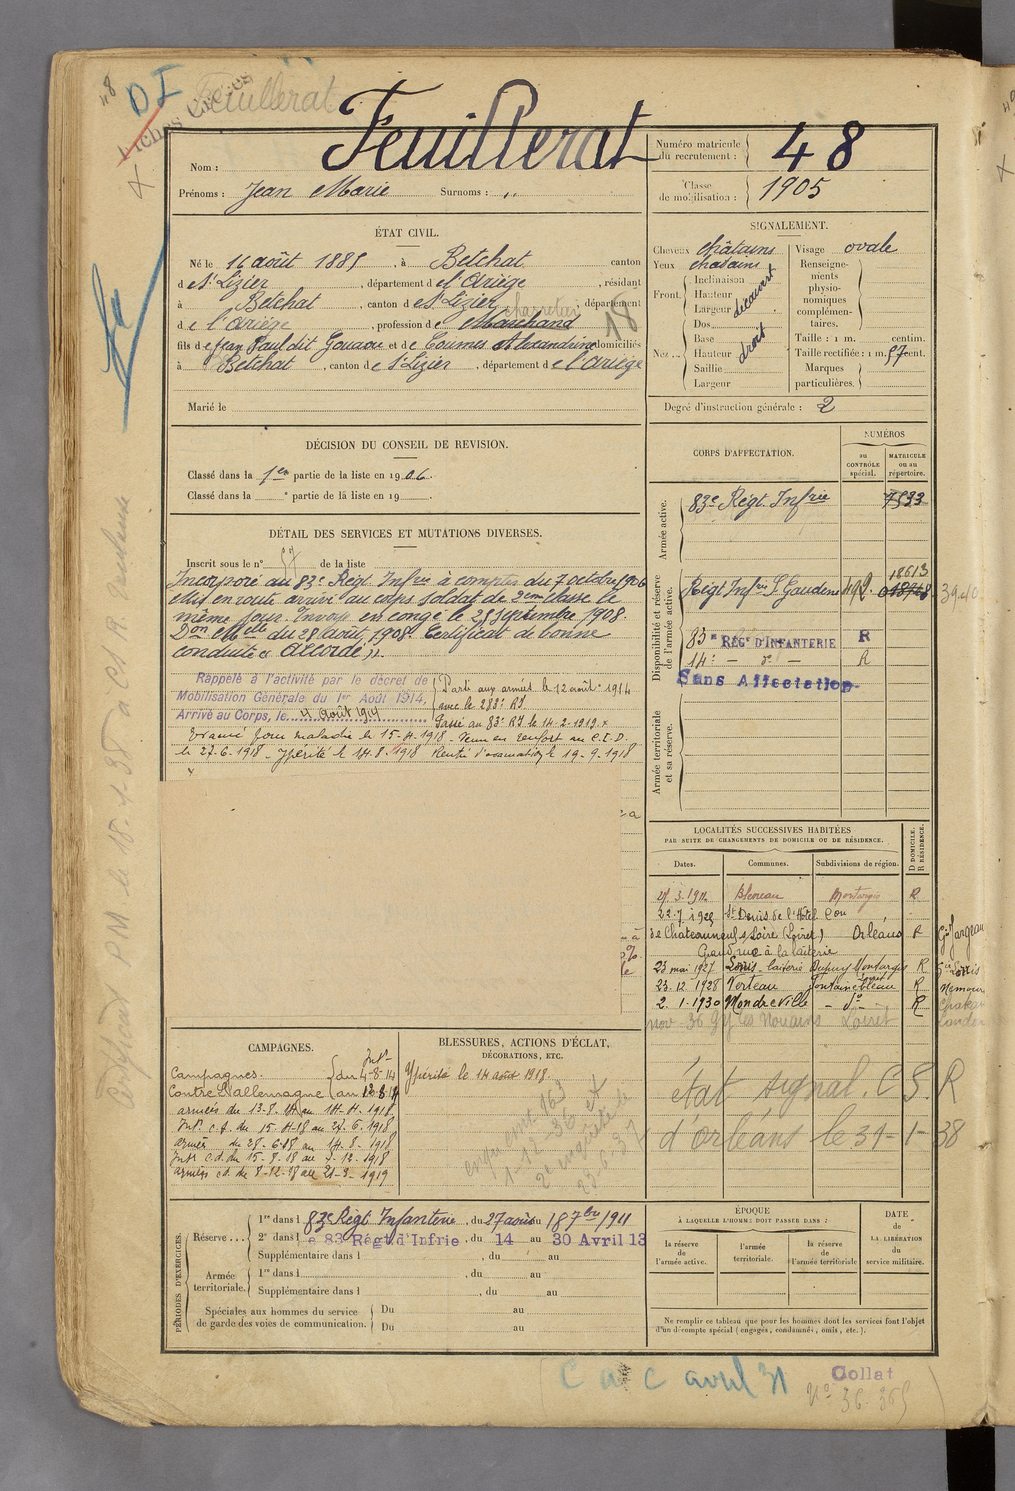 48
DI
Feuillerat
Fiches
Nom : Feuillerat
Prénoms : Jean Marie Surnoms : „
Numéro matricule du recrutement : 48
Classe de mobilisation : 1905
ÉTAT CIVIL.
Né le 16 août 1885, à Betchat canton
de St Lizier, département de l'Ariège, résidant
à Betchat, canton de St Lizier, département
de l'Ariège, profession de Marchand
charretier
18
fils de Jean Paul dit Gouaou et de Coumes Alexandrine domiciliés
à Betchat, canton de St Lizier, département de l'Ariège
Marié le
SIGNALEMENT.
Cheveux châtains
Yeux châtains
Front. Inclinaison
Hauteur
Largeur
découvert
Nez... Dos
Base
Hauteur
Saillie
Largeur
droit
Visage ovale
Renseignements physionomiques complémentaires.
Taille : 1 m. centim.
Taille rectifiée : 1 m. 57 cent.
Marques particulières.
Degré d'instruction générale : 2
DÉCISION DU CONSEIL DE REVISION.
Classé dans la 1ere partie de la liste en 1906.
Classé dans la ° partie de la liste en 19
DÉTAIL DES SERVICES ET MUTATIONS DIVERSES.
Inscrit sous le n° 57 de la liste
Incorporé au 83e Régt Infrie à compter du 7 octobre 1906
Mis en route arrivé au corps soldat de 2eme classe le
même jour. Envoyé en congé le 25 septembre 1908.
Don elle du 28 août 1908. Certificat de bonne
conduite « Accordé ».
Rappelé à l'activité par le décret de
Mobilisation Générale du 1er Août 1914,
Arrivé au Corps, le 4 Août 1914
Parti aux armées le 12 août 1914
avec le 283e RI.
Passé au 83e RI le 14-2-1919
Evacué pour maladie le 15-4-1918 - Venu en renfort au C.I.D.
le 27-6-1918 - Ypérité le 14.8.1918 Rentré d'évacuation le 19-9-1918
CORPS D'AFFECTATION.
NUMÉROS
au CONTRÔLE spécial.
MATRICULE ou au répertoire.
Armée active.
83e Régt Infrie 7533
Disponibilité et réserve de l'armée active.
Régt Infrie St Gaudens 492 18613
83e RÉGt D'INFANTERIE R
14e — do — R
Sans Affectation
Armée territoriale et sa réserve.
LOCALITÉS SUCCESSIVES HABITÉES
PAR SUITE DE CHANGEMENTS DE DOMICILE OU DE RÉSIDENCE.
Dates. Communes. Subdivisions de région. D DOMICILE. R RÉSIDENCE.
27.3.1912 Bléneau Montargis R
22-7-1925 St Denis de l'Hôtel
de Chateauneuf s/ Loire (Loiret) Orléans R
Grand rue à la laiterie
23 mai 1927 Lorris - laiterie Dupuy Montargis R
23.12.1928 Verteau Fontainebleau R
2-1-1930 Mondreville - do - R
nov - 36 Gy les Nonains Loiret
état signal. C.S.R
d'orléans le 31-1-38
CAMPAGNES.
Campagnes
Contre l'allemagne
Intr
du 4-8-14
au 12-8-14
armées du 13-8-14 au 14-4-1918
Intr c.d. du 15-4-18 au 27-6-1918
armées du 28-6-18 au 14-8-1918
Intr c.d. du 15-8-18 au 7-12-1918
armées c.d. du 8-12-18 au 21-3-1919
BLESSURES, ACTIONS D'ÉCLAT,
DÉCORATIONS, ETC.
Ypérité le 14 août 1918.
PÉRIODES D'EXERCICES.
Réserve... 1re dans l 83e Régt Infanterie, du 27 août au 18 7bre 1911
2e dans l e 83 Régt d'Infrie, du 14 au 30 Avril 13
Supplémentaire dans l , du au
Armée territoriale. 1re dans l , du au
Supplémentaire dans l , du au
Spéciales aux hommes du service de garde des voies de communication. Du au
Du au
ÉPOQUE
À LAQUELLE L'HOMME DOIT PASSER DANS :
la réserve de l'armée active.
l'armée territoriale.
la réserve de l'armée territoriale
DATE de LA LIBÉRATION du service militaire.
Ne remplir ce tableau que pour les hommes dont les services font l'objet
d'un décompte spécial (engagés, condamnés, omis, etc.).
C a c avril 31
Collat
No 36-365